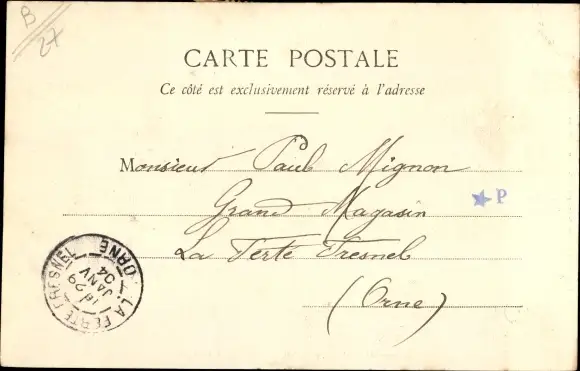 B
27
CARTE POSTALE
Ce côté est exclusivement réservé à l'adresse
Monsieur Paul Mignon
Grand Magasin
P
La Ferté Fresnel
(Orne)
LA FERTÉ FRESNEL
ORNE
29
JANV
04